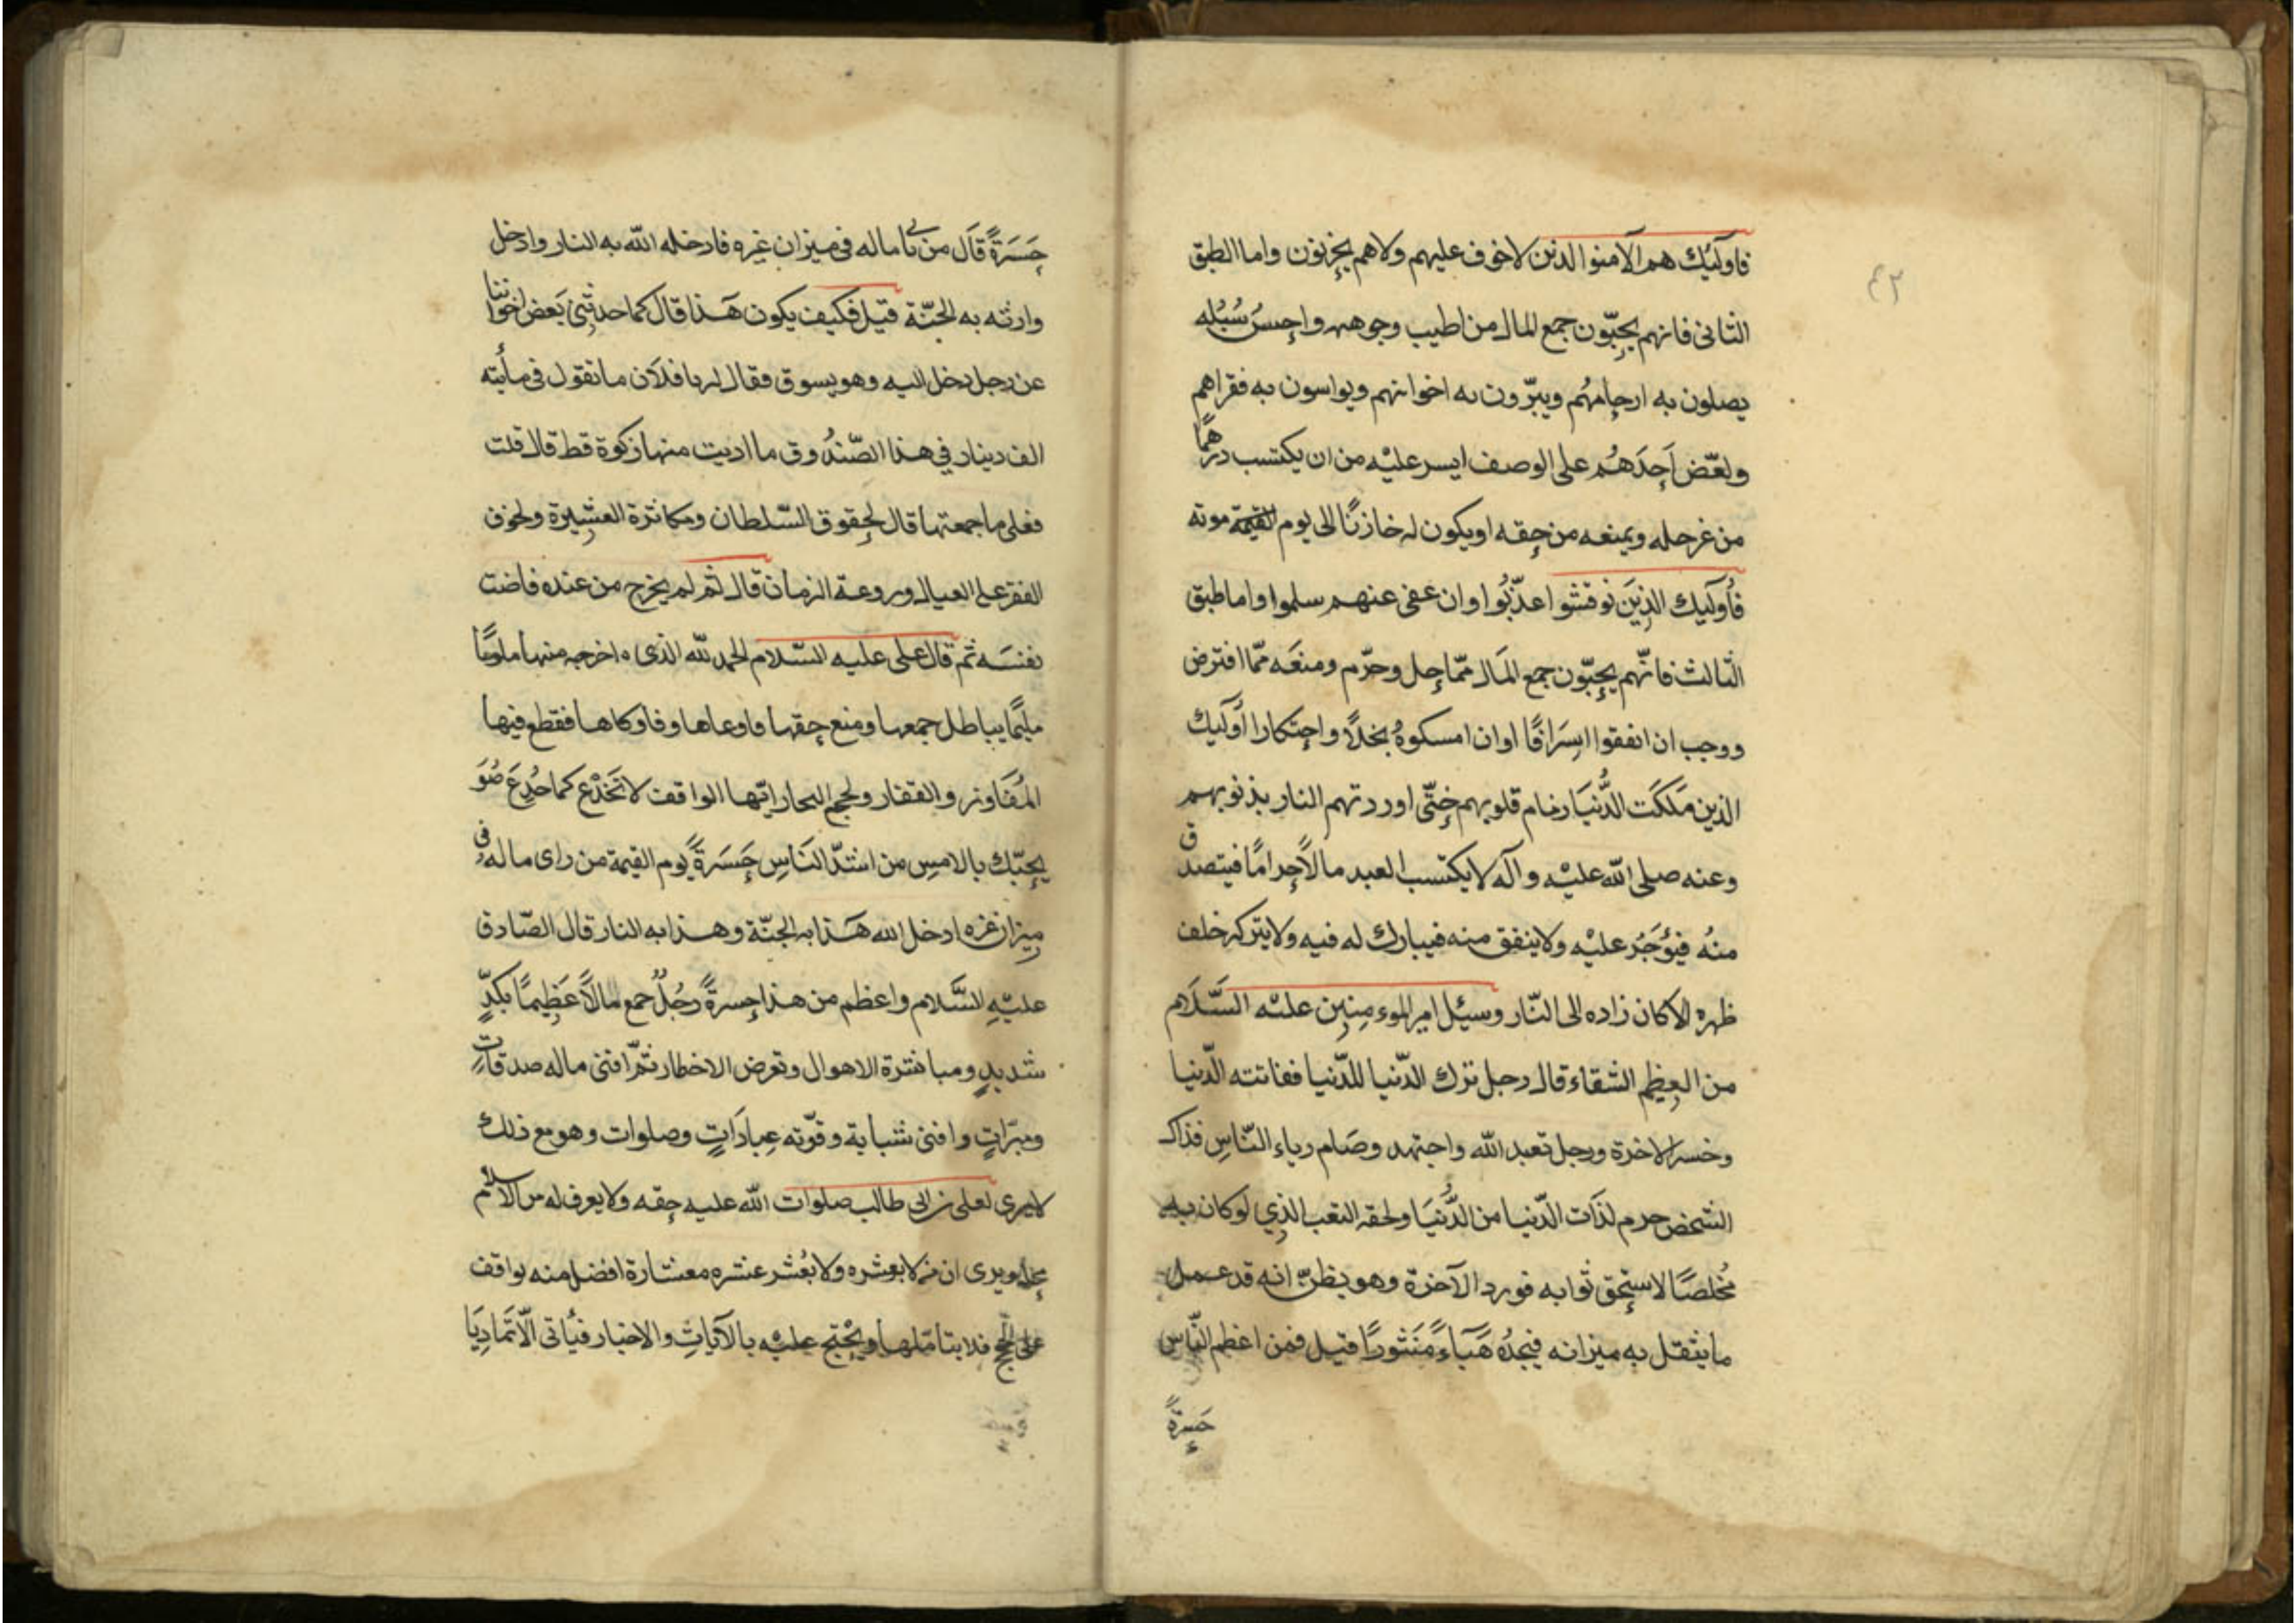 ٤٣
فاولئك هم الآمنوا الذين لاخوف عليهم ولاهم يحزنون واما الطبق
الثانى فانهم يحبّون جمع المال من اطيب وجوهه واحسن سُبُله
يصلون به ارحامهُم ويبرّون به اخوانهم ويواسون به فقراهم
ولعّض اَحِدَهُم على الوصف ايسر عليْه من ان يكتسب درهمًا
من غرحله ويمنعه من حقه اويكون له خازنًا الى يوم القيمة موته
فأولَيك الذِينَ نوقشوا عذّبُوا وان عفى عنهم سلموا واما طبق
الثالث فانّهم يحبّون جمع المَال ممّا حل وحرّم ومنعَه ممّا افترض
ووجب ان انفقوا اسِرَافًا اوان امسكوهُ بخلاً واحتكارا اُولَيك
الذين مَلكَت الدُّنيَا زمام قلوبهم حَتّى اوردتهم النار بذنوبهم
وعنه صلى الله عليْه وآله لايكتسب العبد مالاً حرامًا فيتصدق
منهُ فيُؤجَرُ عليْه ولاينفق منه فيبارك له فيه ولايتركه خلف
ظهره الاكان زاده الى النّار وسيُل امير الموءمِنِين عليْه السَّلَام
من العظيم الشقاء قال رجل ترك الدّنيا للدّنيا ففاتته الدّنيا
وخسر الاخرة ورجل تعبد الله واجتهد وصَام رياء النّاسِ فذاك
الشخص حرم لذَات الدّنيا من الدُّنيَا ولحقه التعب الذِي لوكان به
مُخلصًا لاستحق ثوابه فورد الآخرة وهو يظنّ انه قد عمل
ما يثقل به ميزانه فيَجدُه هَبَاءً مَنثورًا قيل فمن اعظم النّاس
حَسِرةً
حَسَرَةً قَال من يا ماله فى ميزان غيره فادخله الله به النار وادخل
وارثه به الجنّة قيل فكيف يكون هَذا قال كما حدثنِى بَعض اخواننا
عن رجل دخل اليه وهو يسوق فقال له يا فلَان ما تقول فى مأيته
الف دينار فِى هذا الصّندُوق ما اديت منها زكوة قط قال قلت
فعلى ما جمعتها قال لحقوق السّلطان ومكاثرة العشِيرة ولخوف
الفقر على العيال وروعة الزمان قال ثم لم يخرج من عنده فاضت
نفسَه ثم قال على عليه السّلام الحمد لله الذى اخرجه منها ملومًا
مليًما بباطل جمعها ومنع حقها فاوعاها وفاوكاها فقطع فيها
المُفَاوز والقفار ولجج البحار ايّها الواقف لا تَخدَع كما خُدِعَ صُوَ
يحِبّك بالامسِ من اشدّ النَاسِ حَسَرةً يوم القيمة من راى ماله فى
ميزان غره ادخل الله هَذا به الجنّة وهذا به النار قال الصّادق
عليْهِ السَّلام واعظم من هذا حسرةً رجُلٌ جمع مالاً عَظِيمًا بكدٍّ
شديدٍ ومباشرة الاهوال وتعرض الاخطار ثمّ افنى ماله صدقاتٍ
ومبرّاتٍ وافنى شبابة وقوّته عِبادَاتٍ وصلوات وهو مع ذلك
لايرى لعلى بن ابى طالب صلوات الله عليه حقه ولايعرف له من الاسلام
محله ويرى ان من لابعشره ولا بعُشر عشره معشارة افضل منه يواقف
على الحجج فلا يتأمّلها ويحْتج عليْه بالآياتِ والاخبار فيُأتى الّا تمَادِيًا